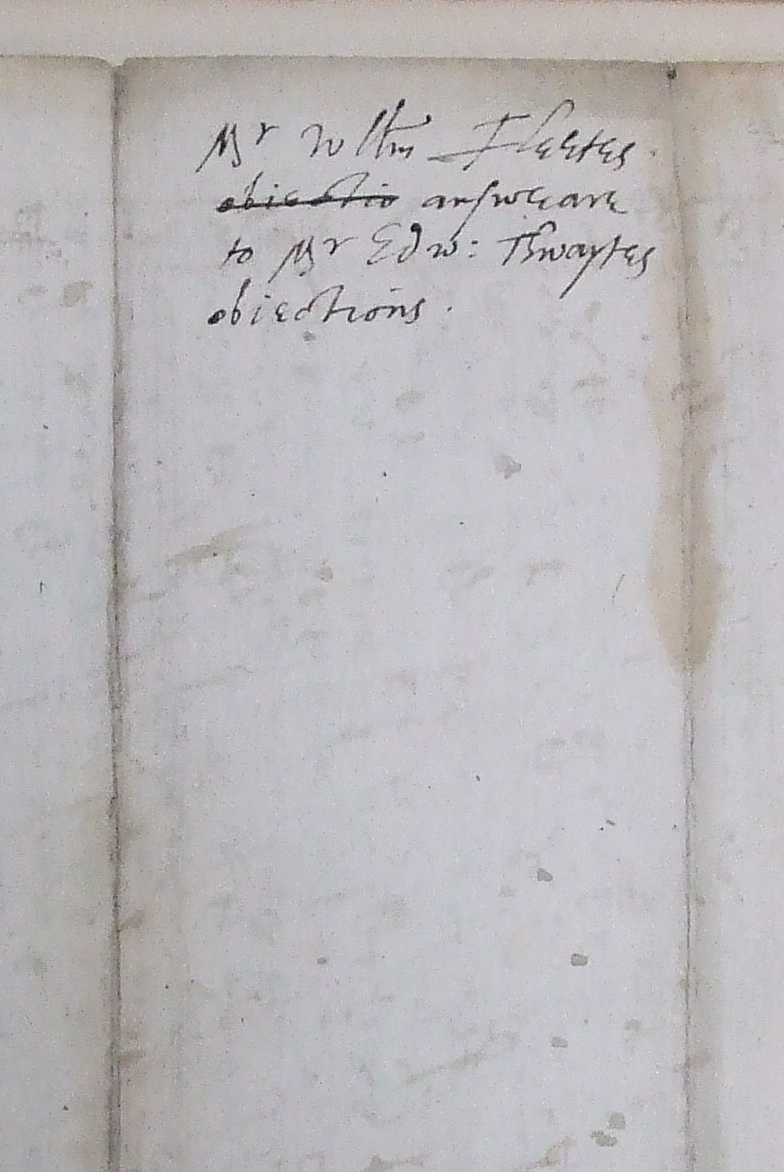 Mr Willm Fleetes
obiectio answeare
to Mr Edw: Thwaytes
obiections.